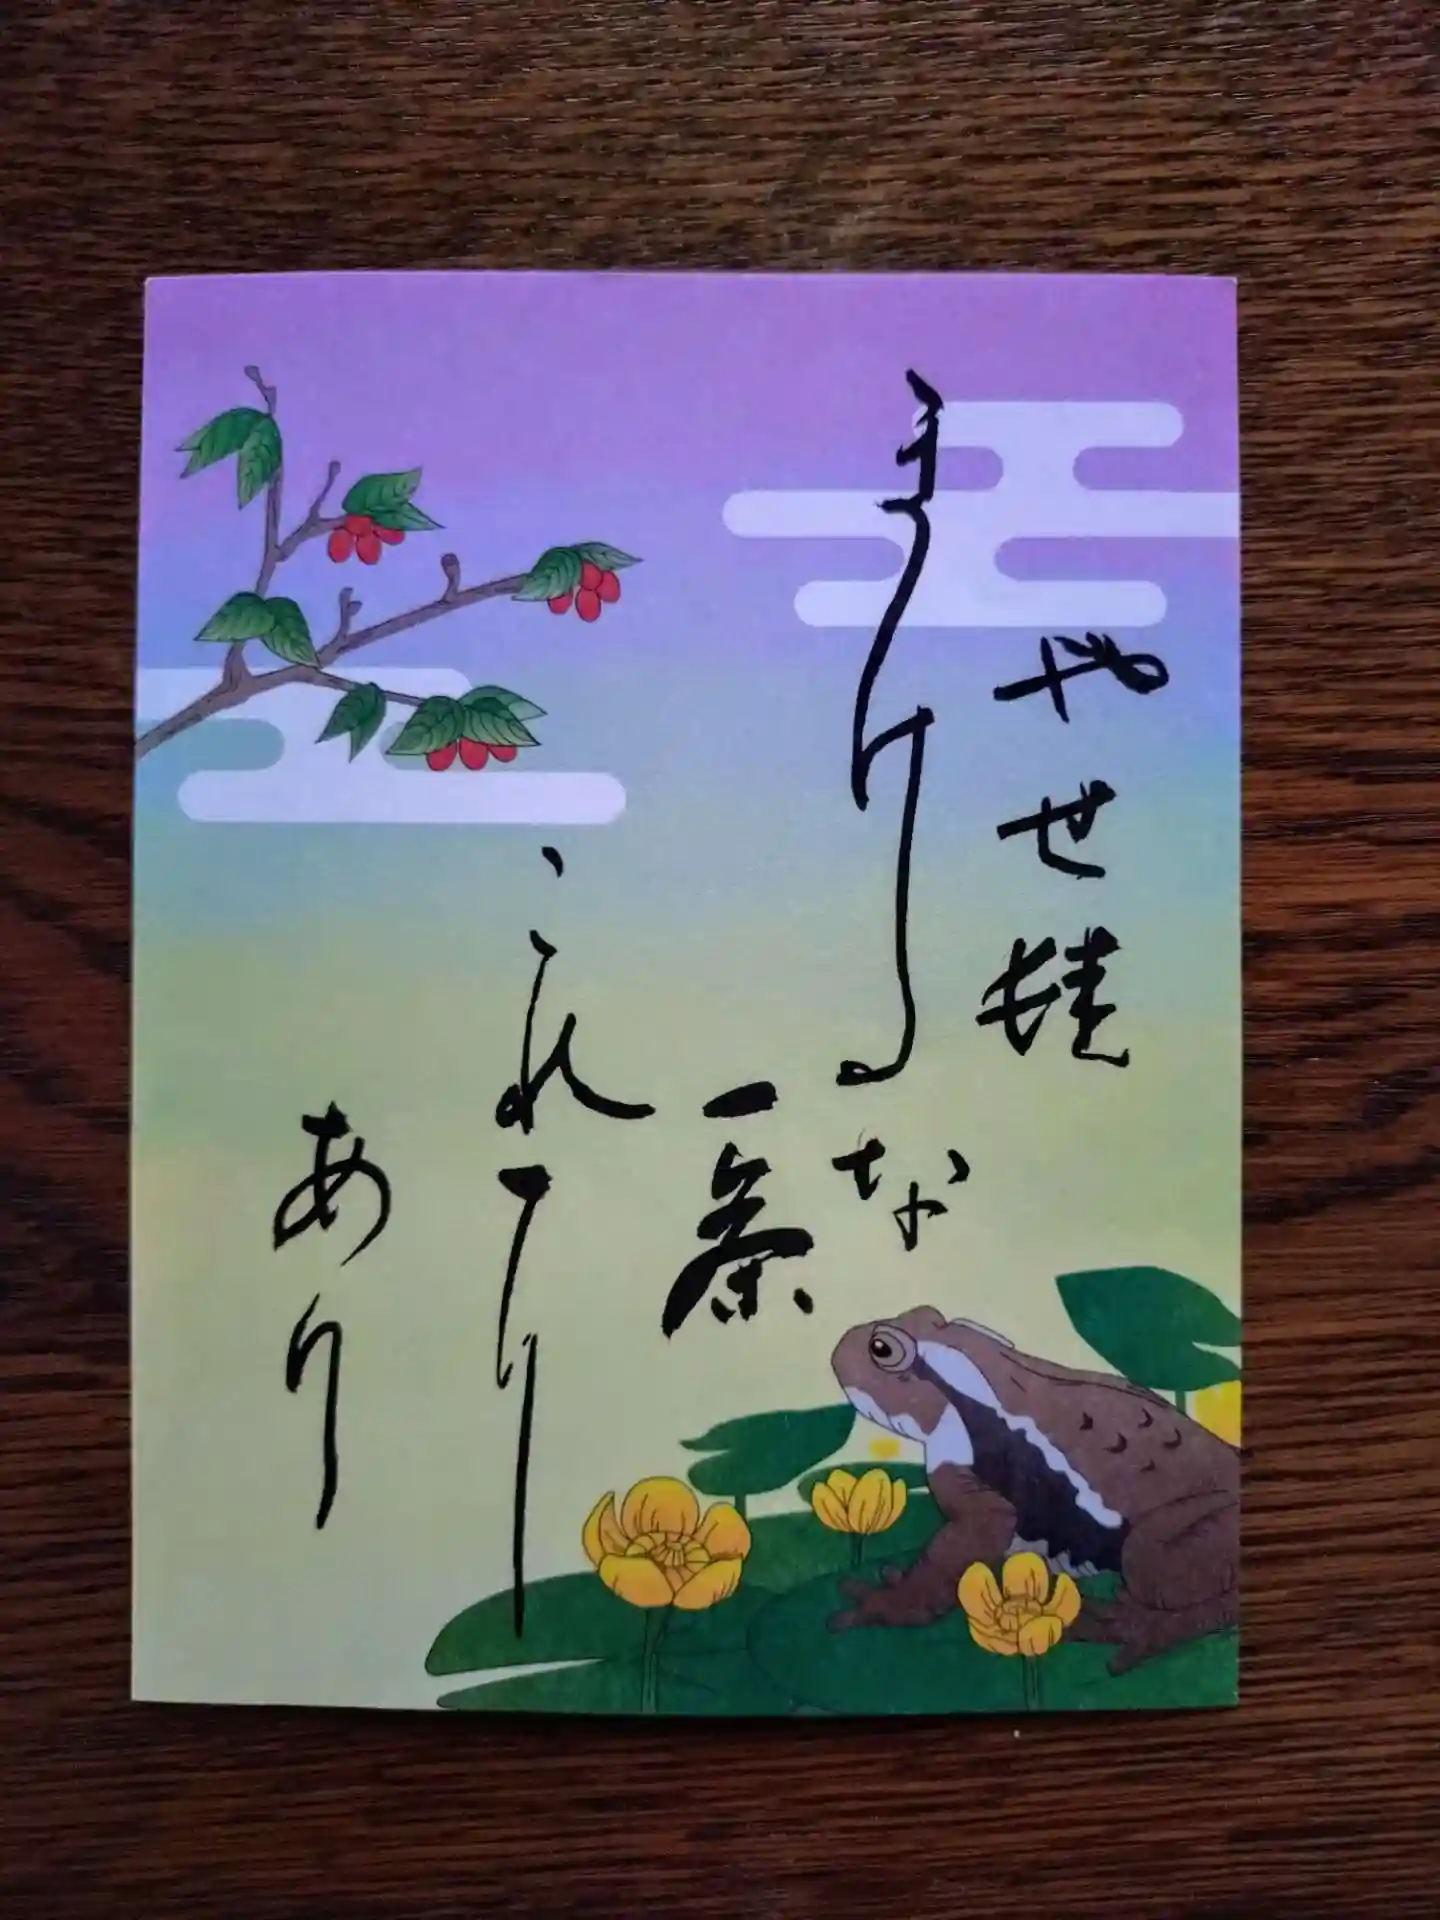 やせ蛙
まけるな
一茶
これにり
あり